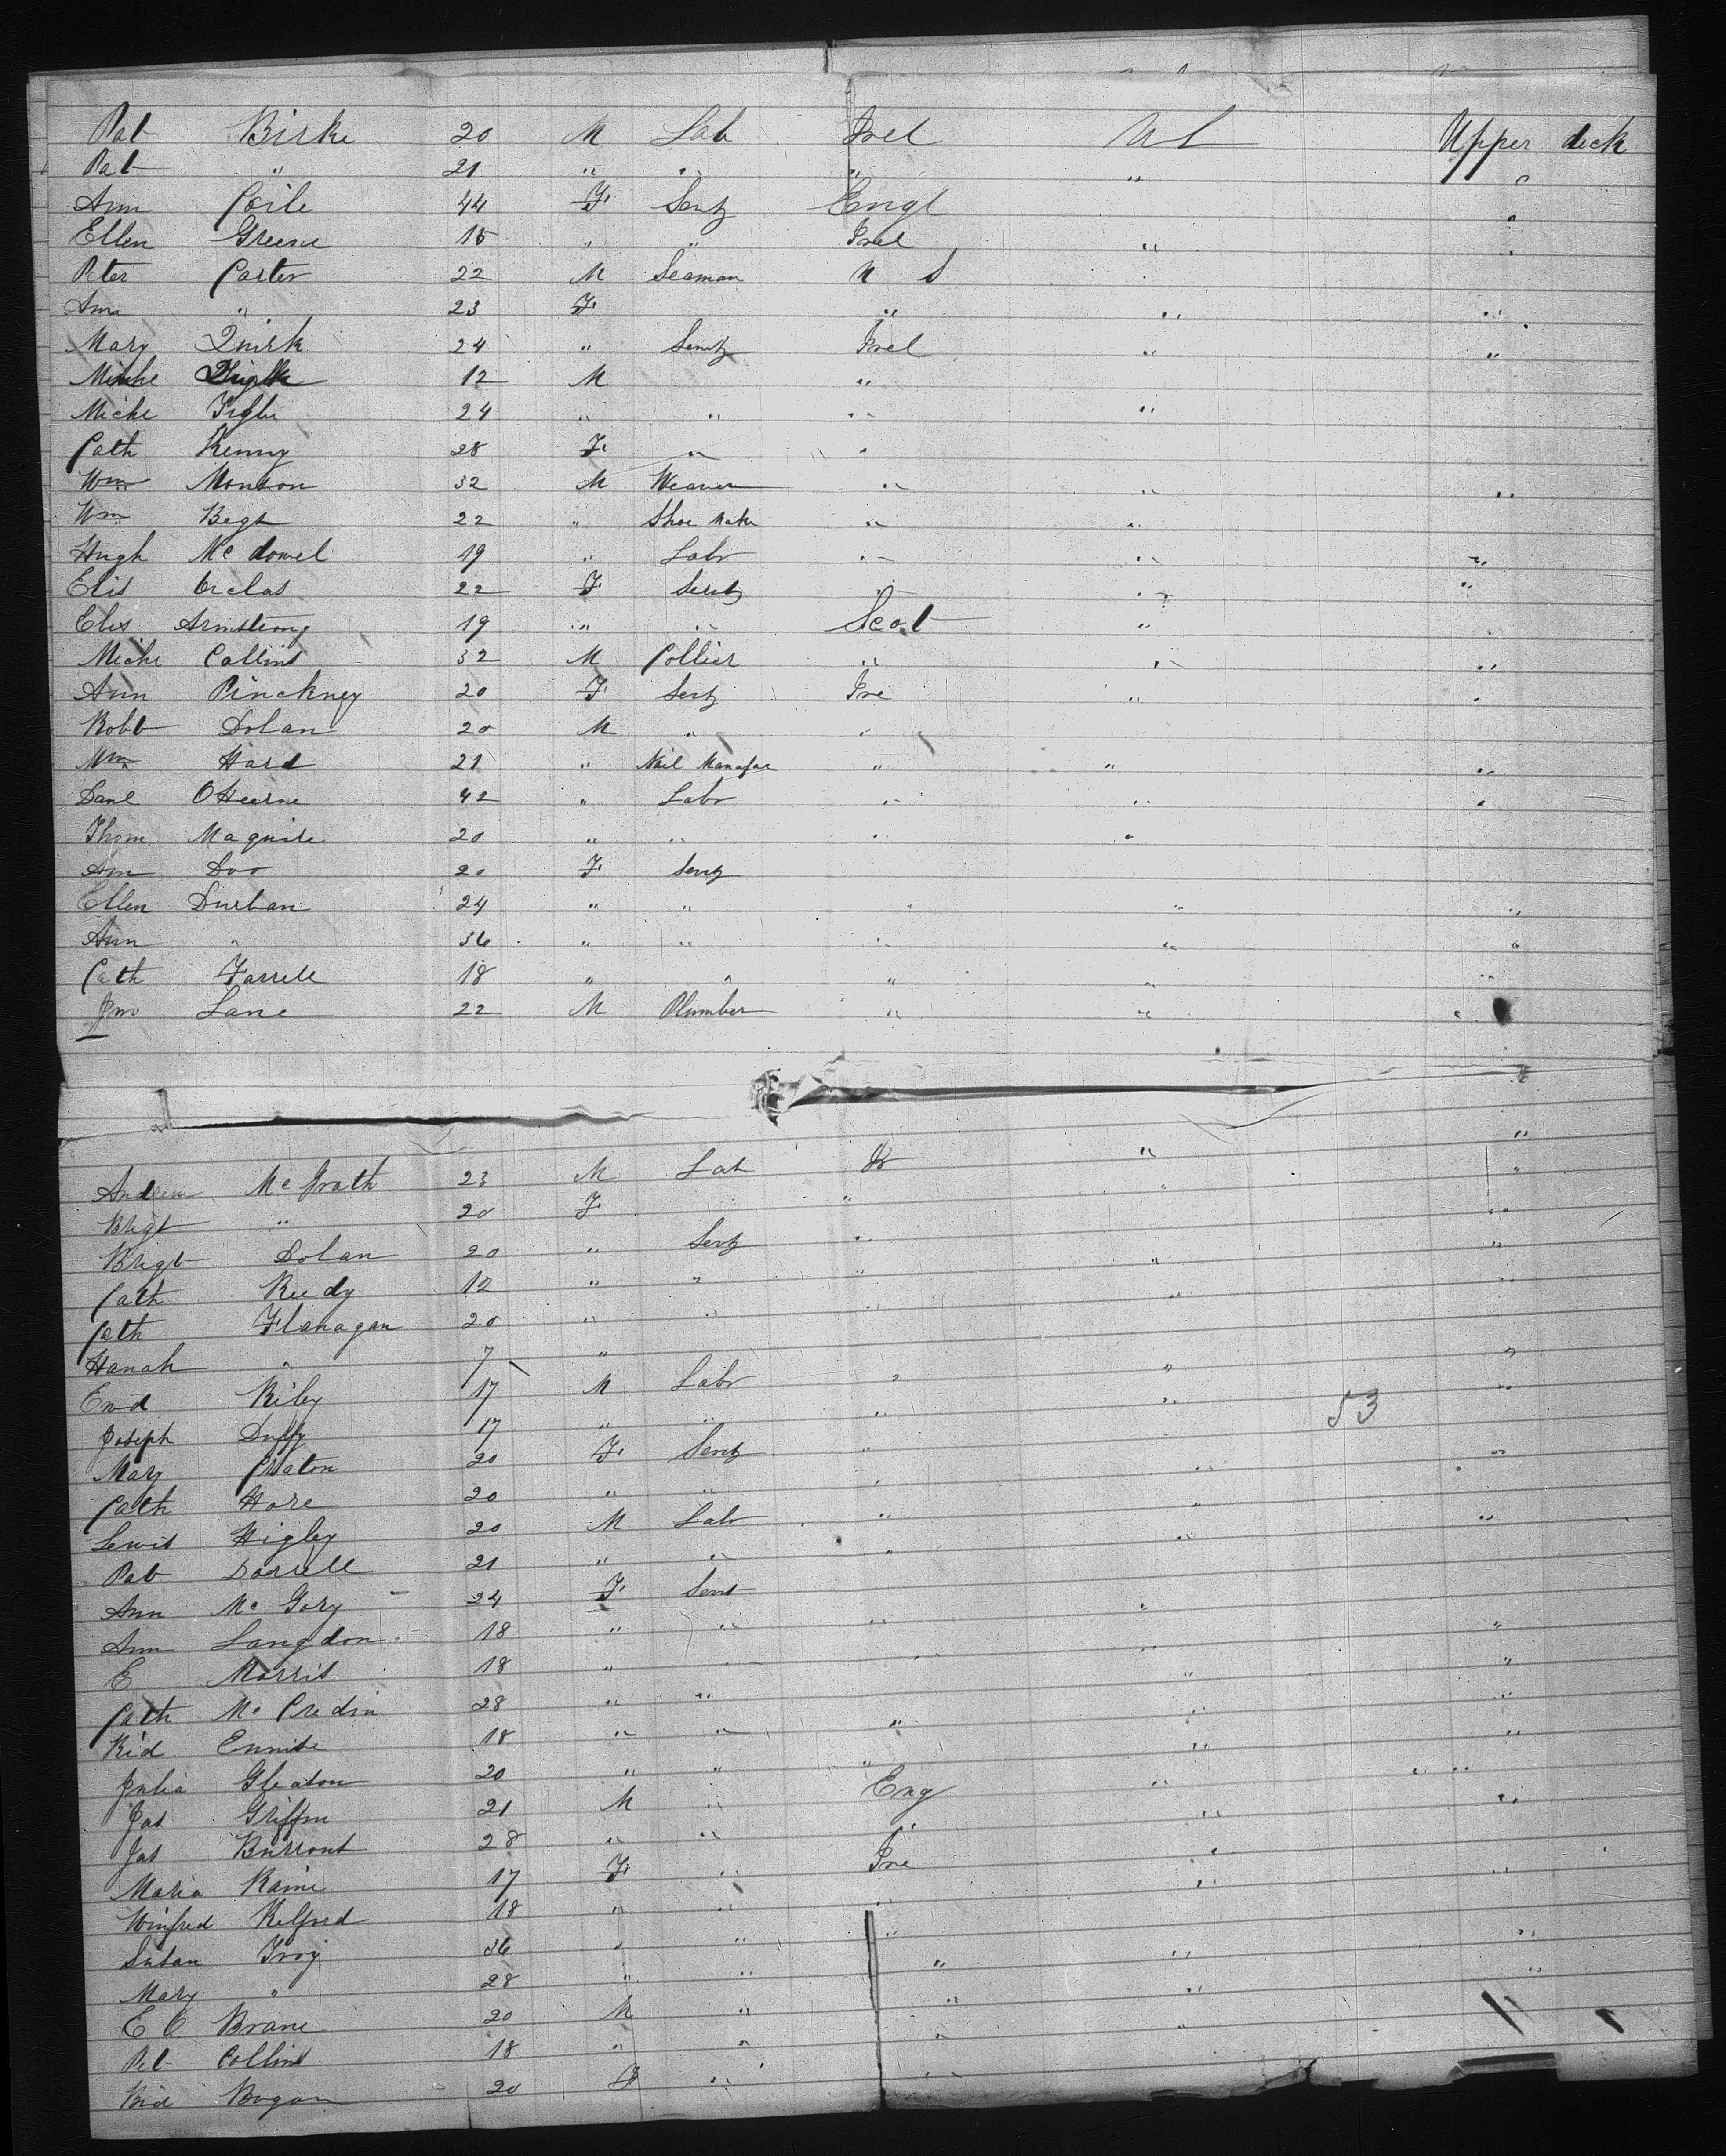 Pat Birke 20 M Lab Irel U S Upper deck
Pat " 21 " " " " "
Ann Coile 44 F Servt Engl "
Ellen Greene 15 " " Irel " "
Peter Carter 22 M Seaman U S
Ann " 23 F " " "
Mary Quirk 24 " Servt Irel " "
Miche 12 M "
Miche 24 " " " "
Cath Kenny 28 F " "
Wm Monson 32 M Weaver " " "
Wm Begt 22 " Shoe Maker " "
Hugh Mc dowel 19 " Labr " " "
Elis 22 F Servt " " "
Elis Armstrong 19 " " Scot "
Miche Collins 32 M Collier " " "
Ann Pinckney 20 F Servt Ire " "
Robt Dolan 20 M " "
Wm Hard 21 " Nail " " "
Danl O Hearne 42 " Labr " " "
Thom Maguire 20 " " " "
Ann Doo 20 F Servt
Ellen Durban 24 " " " " "
Ann " 36 " " " " "
Cath Farrell 18 " " " " "
Jno Lane 22 M Plumber " " "
Andrew Mc Grath 23 M Lab Ir " "
Brigt " 20 F " " "
Brigt Dolan 20 " Servt " "
Cath Reedy 12 " " " " "
Cath Flanagan 20 " " " " "
Hanah " 7 "
Ewd Riley 17 M Labr " " "
Joseph Duffy 17 " " " " "
Mary 20 F Servt "
Cath Hore 20 " " " " "
Lewis Higley 20 M Labr " "
Pat Darrell 21 " " " " "
Ann Mc Gory 24 F Servt
Ann Langdon 18 " " " "
E Morris 18 " " " " "
Cath Mc Credin 28 " " " "
Bid Ennise 18 " " " " "
Julia Gleaton 20 " " " " "
Jas Griffin 21 M " Eng " "
Jas 28 " " " "
Maria Raine 17 F " Ire "
Winfred Kelford 18 " " " " "
Susan Troy 36 " " "
Mary " 28 " " " " "
E O Brane 20 M " " " "
Pat Collins 18 " " " "
Bid Bogan 20 F " "
53